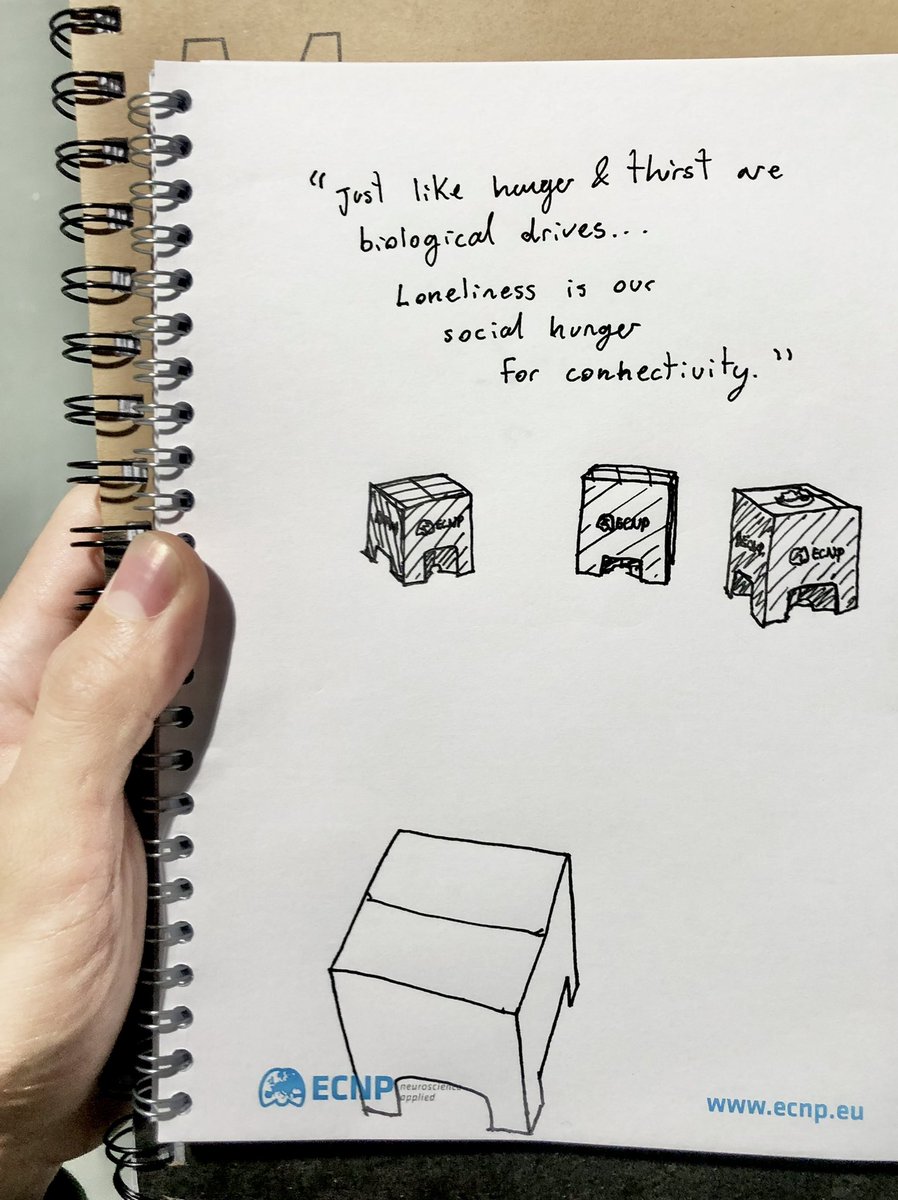 “Just like hunger & thirst are
biological drives...
Loneliness is our
social hunger
for connectivity.”
ECNP
ECNP
ECNP
ECNP neuroscience
applied
www.ecnp.eu